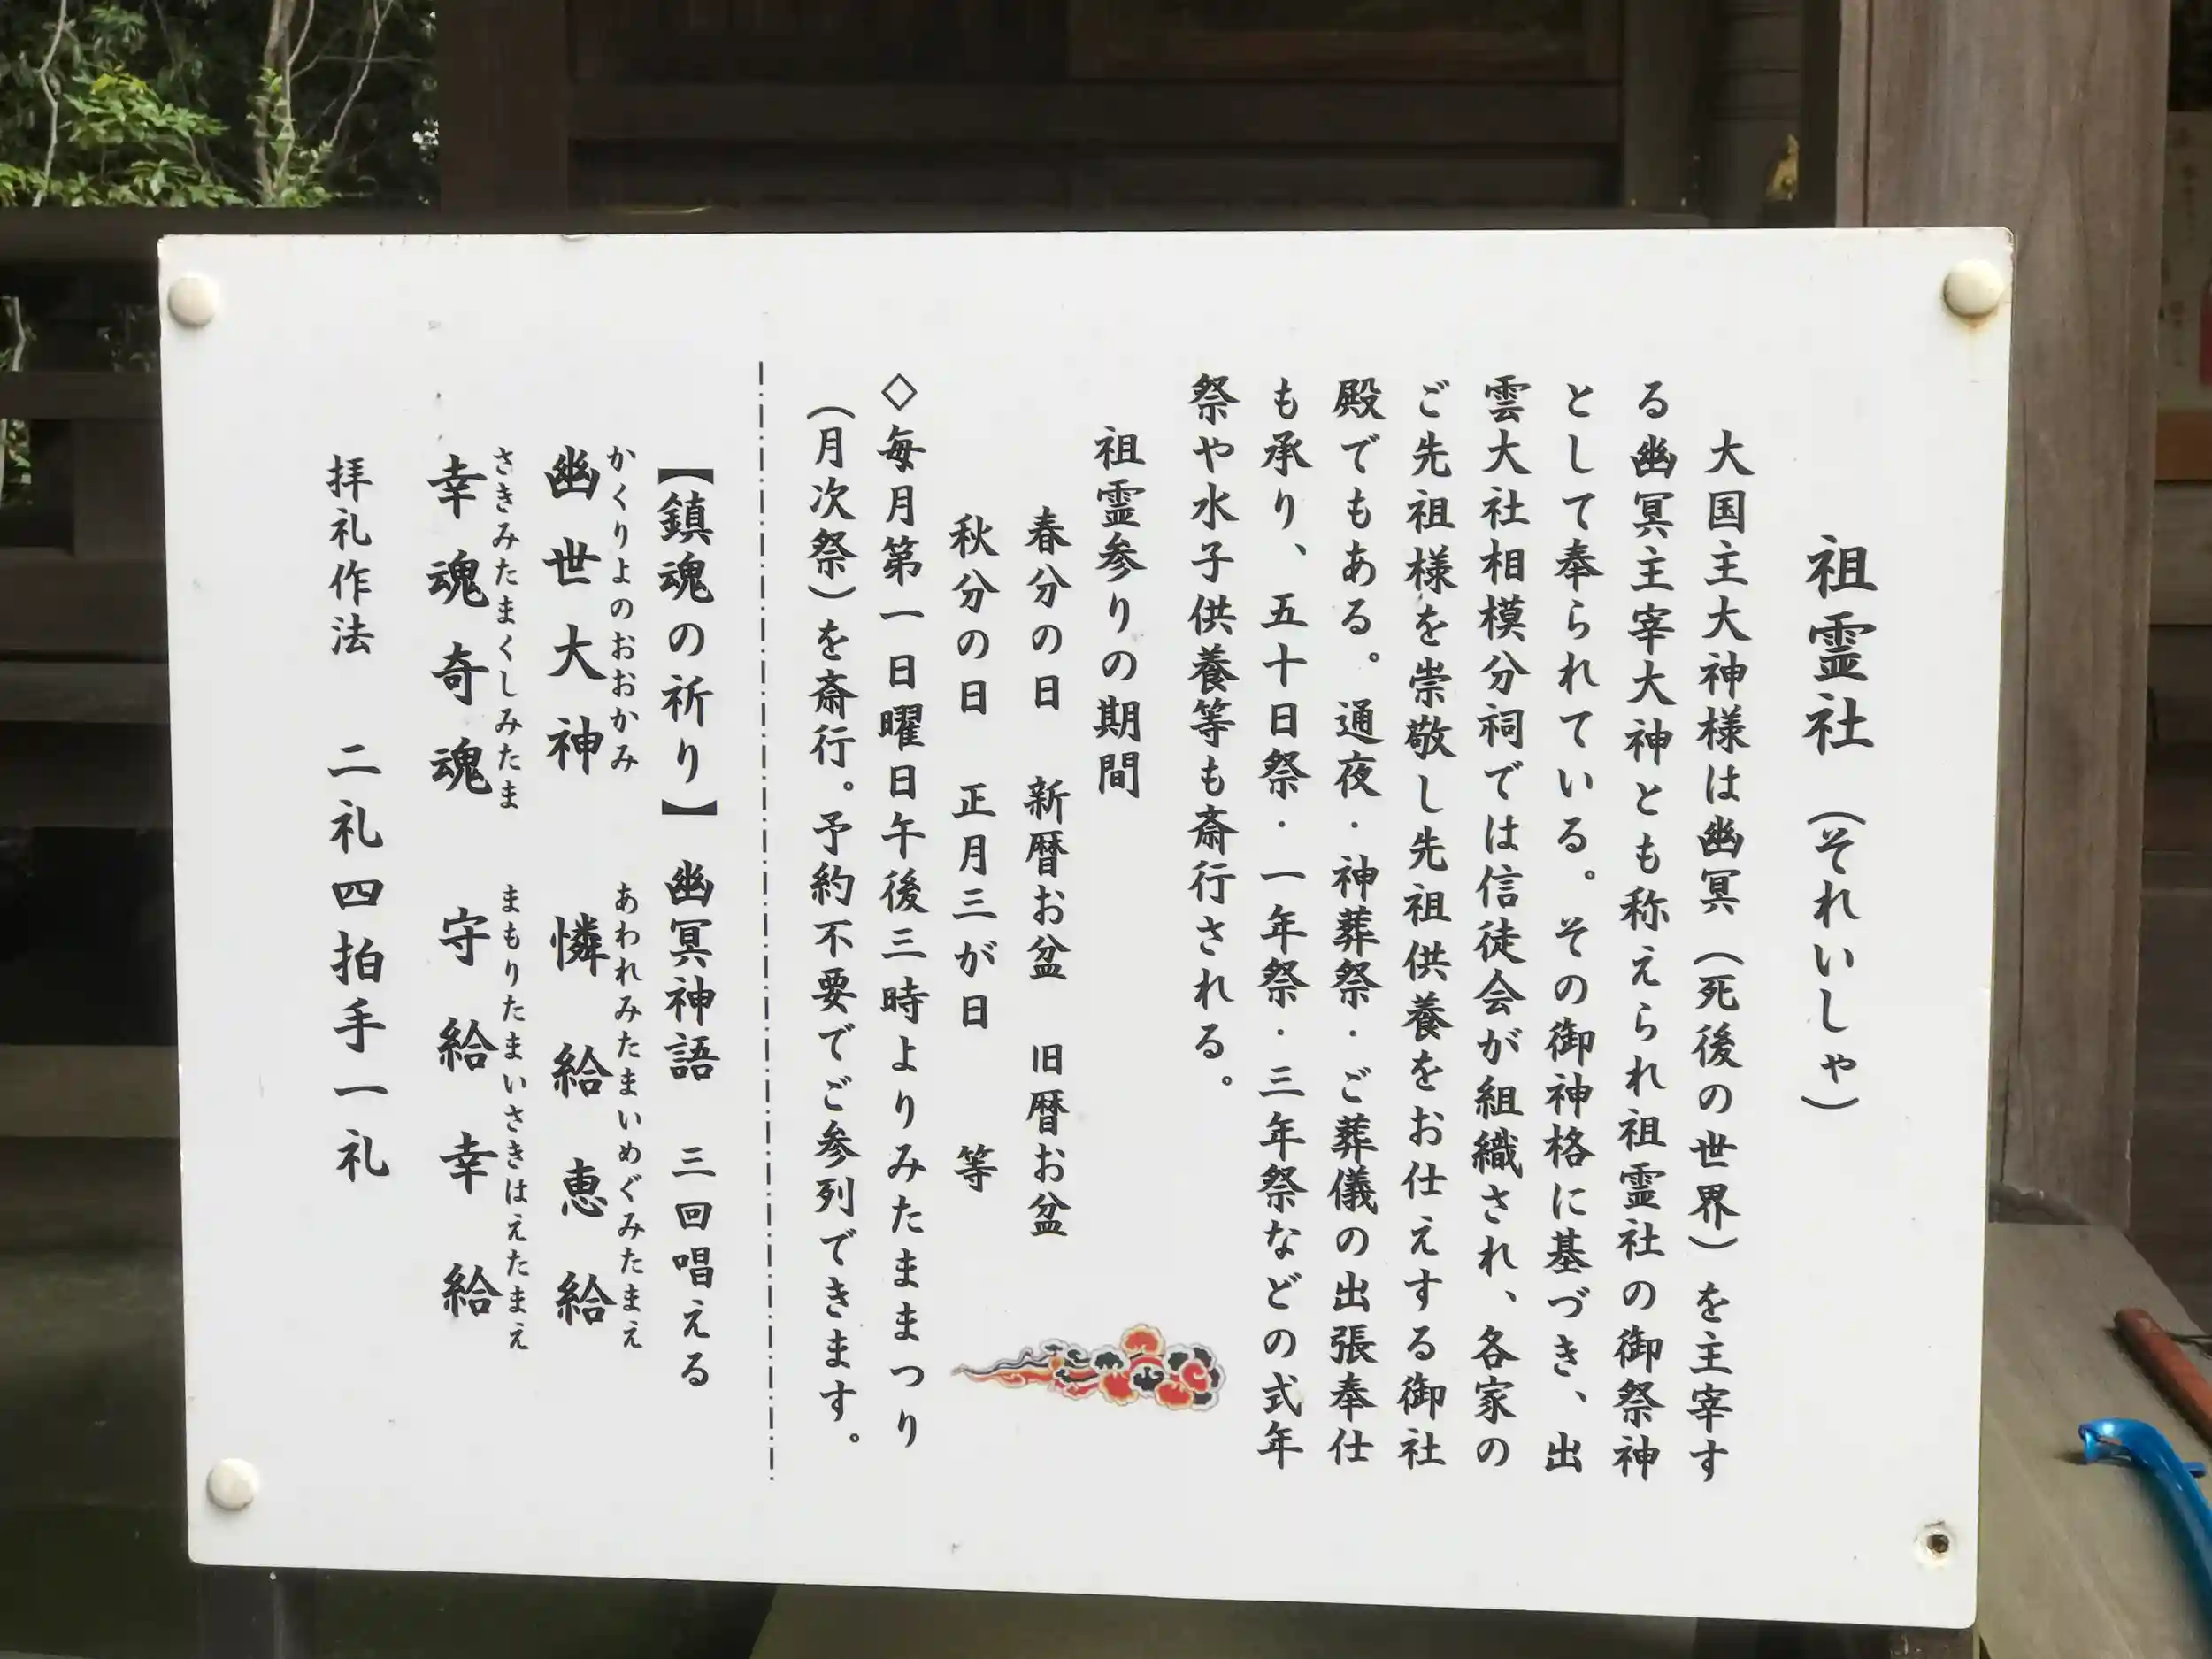 祖霊社（それいしゃ）
大国主大神様は幽冥（死後の世界）を主宰す
る幽冥主宰大神とも称えられ祖霊社の御祭神
として奉られている。その御神格に基づき、出
雲大社相模分祠では信徒会が組織され、各家の
ご先祖様を崇敬し先祖供養をお仕えする御社
殿でもある。通夜・神葬祭・ご葬儀の出張奉仕
も承り、五十日祭・一年祭・三年祭などの式年
祭や水子供養等も斎行される。
祖霊参りの期間
春分の日　新暦お盆　旧暦お盆
秋分の日　正月三が日　　等
◇毎月第一日曜日午後三時よりみたままつり
（月次祭）を斎行。予約不要でご参列できます。
【鎮魂の祈り】幽冥神語　三回唱える
かくりよのおおかみ　あわれみたまいめぐみたまえ
幽世大神　憐給恵給
さきみたまくしみたま　まもりたまいさきはえたまえ
幸魂奇魂　守給幸給
拝礼作法　二礼四拍手一礼